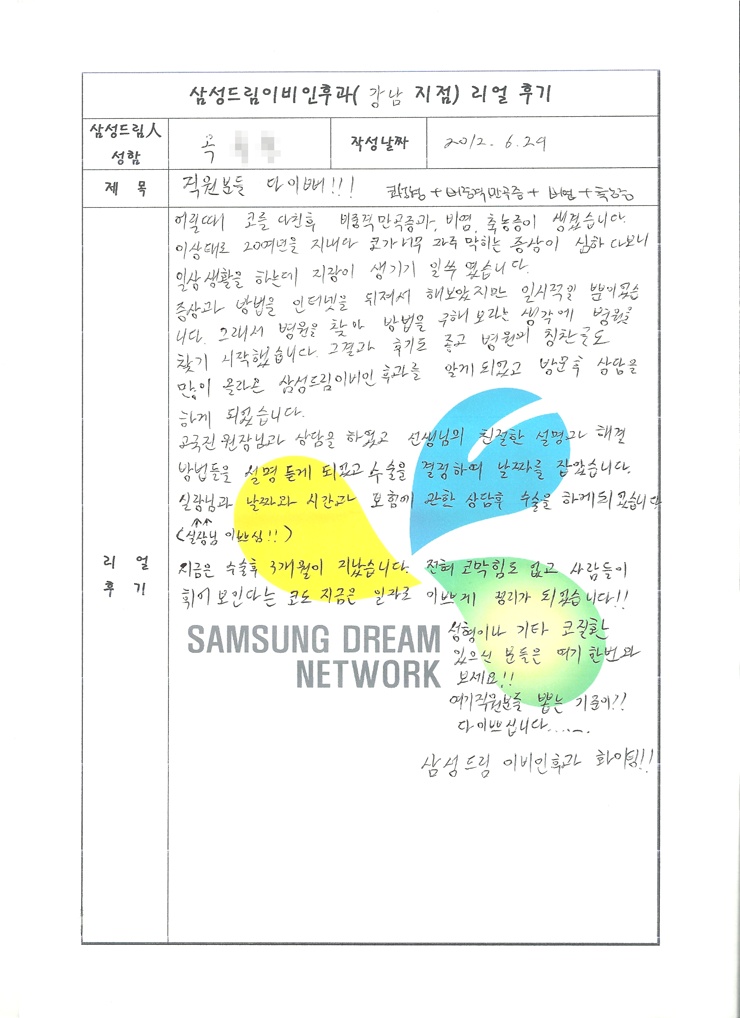 삼성드림이비인후과( 강남 지점) 리얼 후기
삼성드림人 성함
옥
작성날짜
2012. 6. 29
제 목
직원분들 다 이뻐!!!
코성형 + 비중격만곡증 + 비염 + 축농증
리 얼
후 기
어릴때 코를 다친후 비중격만곡증과, 비염, 축농증이 생겼습니다.
이상태로 20여년을 지내다 코가 너무 자주 막히는 증상이 심하다보니
일상생활을 하는데 지장이 생기기 일쑤 였습니다.
증상과 방법을 인터넷을 뒤져서 해보았지만 일시적일 뿐이였습
니다. 그래서 병원을 찾아 방법을 구해 보라는 생각에 병원을
찾기 시작했습니다. 그결과 후기도 좋고 병원의 칭찬글도
많이 올라온 삼성드림이비인후과를 알게 되었고 방문후 상담을
하게 되었습니다.
고국진 원장님과 상담을 하였고 선생님의 친절한 설명과 해결
방법들을 설명 듣게 되었고 수술을 결정하여 날짜를 잡았습니다.
실장님과 날짜와 시간과 보험에 관한 상담후 수술을 하게되었습니다
(실장님 이쁘심!!)
지금은 수술후 3개월이 지났습니다. 전혀 코막힘도 없고 사람들이
휘어 보인다는 코도 지금은 일자로 이쁘게 정리가 되었습니다!!
성형이나 기타 코질환
있으신 분들은 여기 한번와
보세요!!
여기직원분들 뽑는 기준이??
다이쁘십니다......
삼성드림 이비인후과 화이팅!!
SAMSUNG DREAM
NETWORK